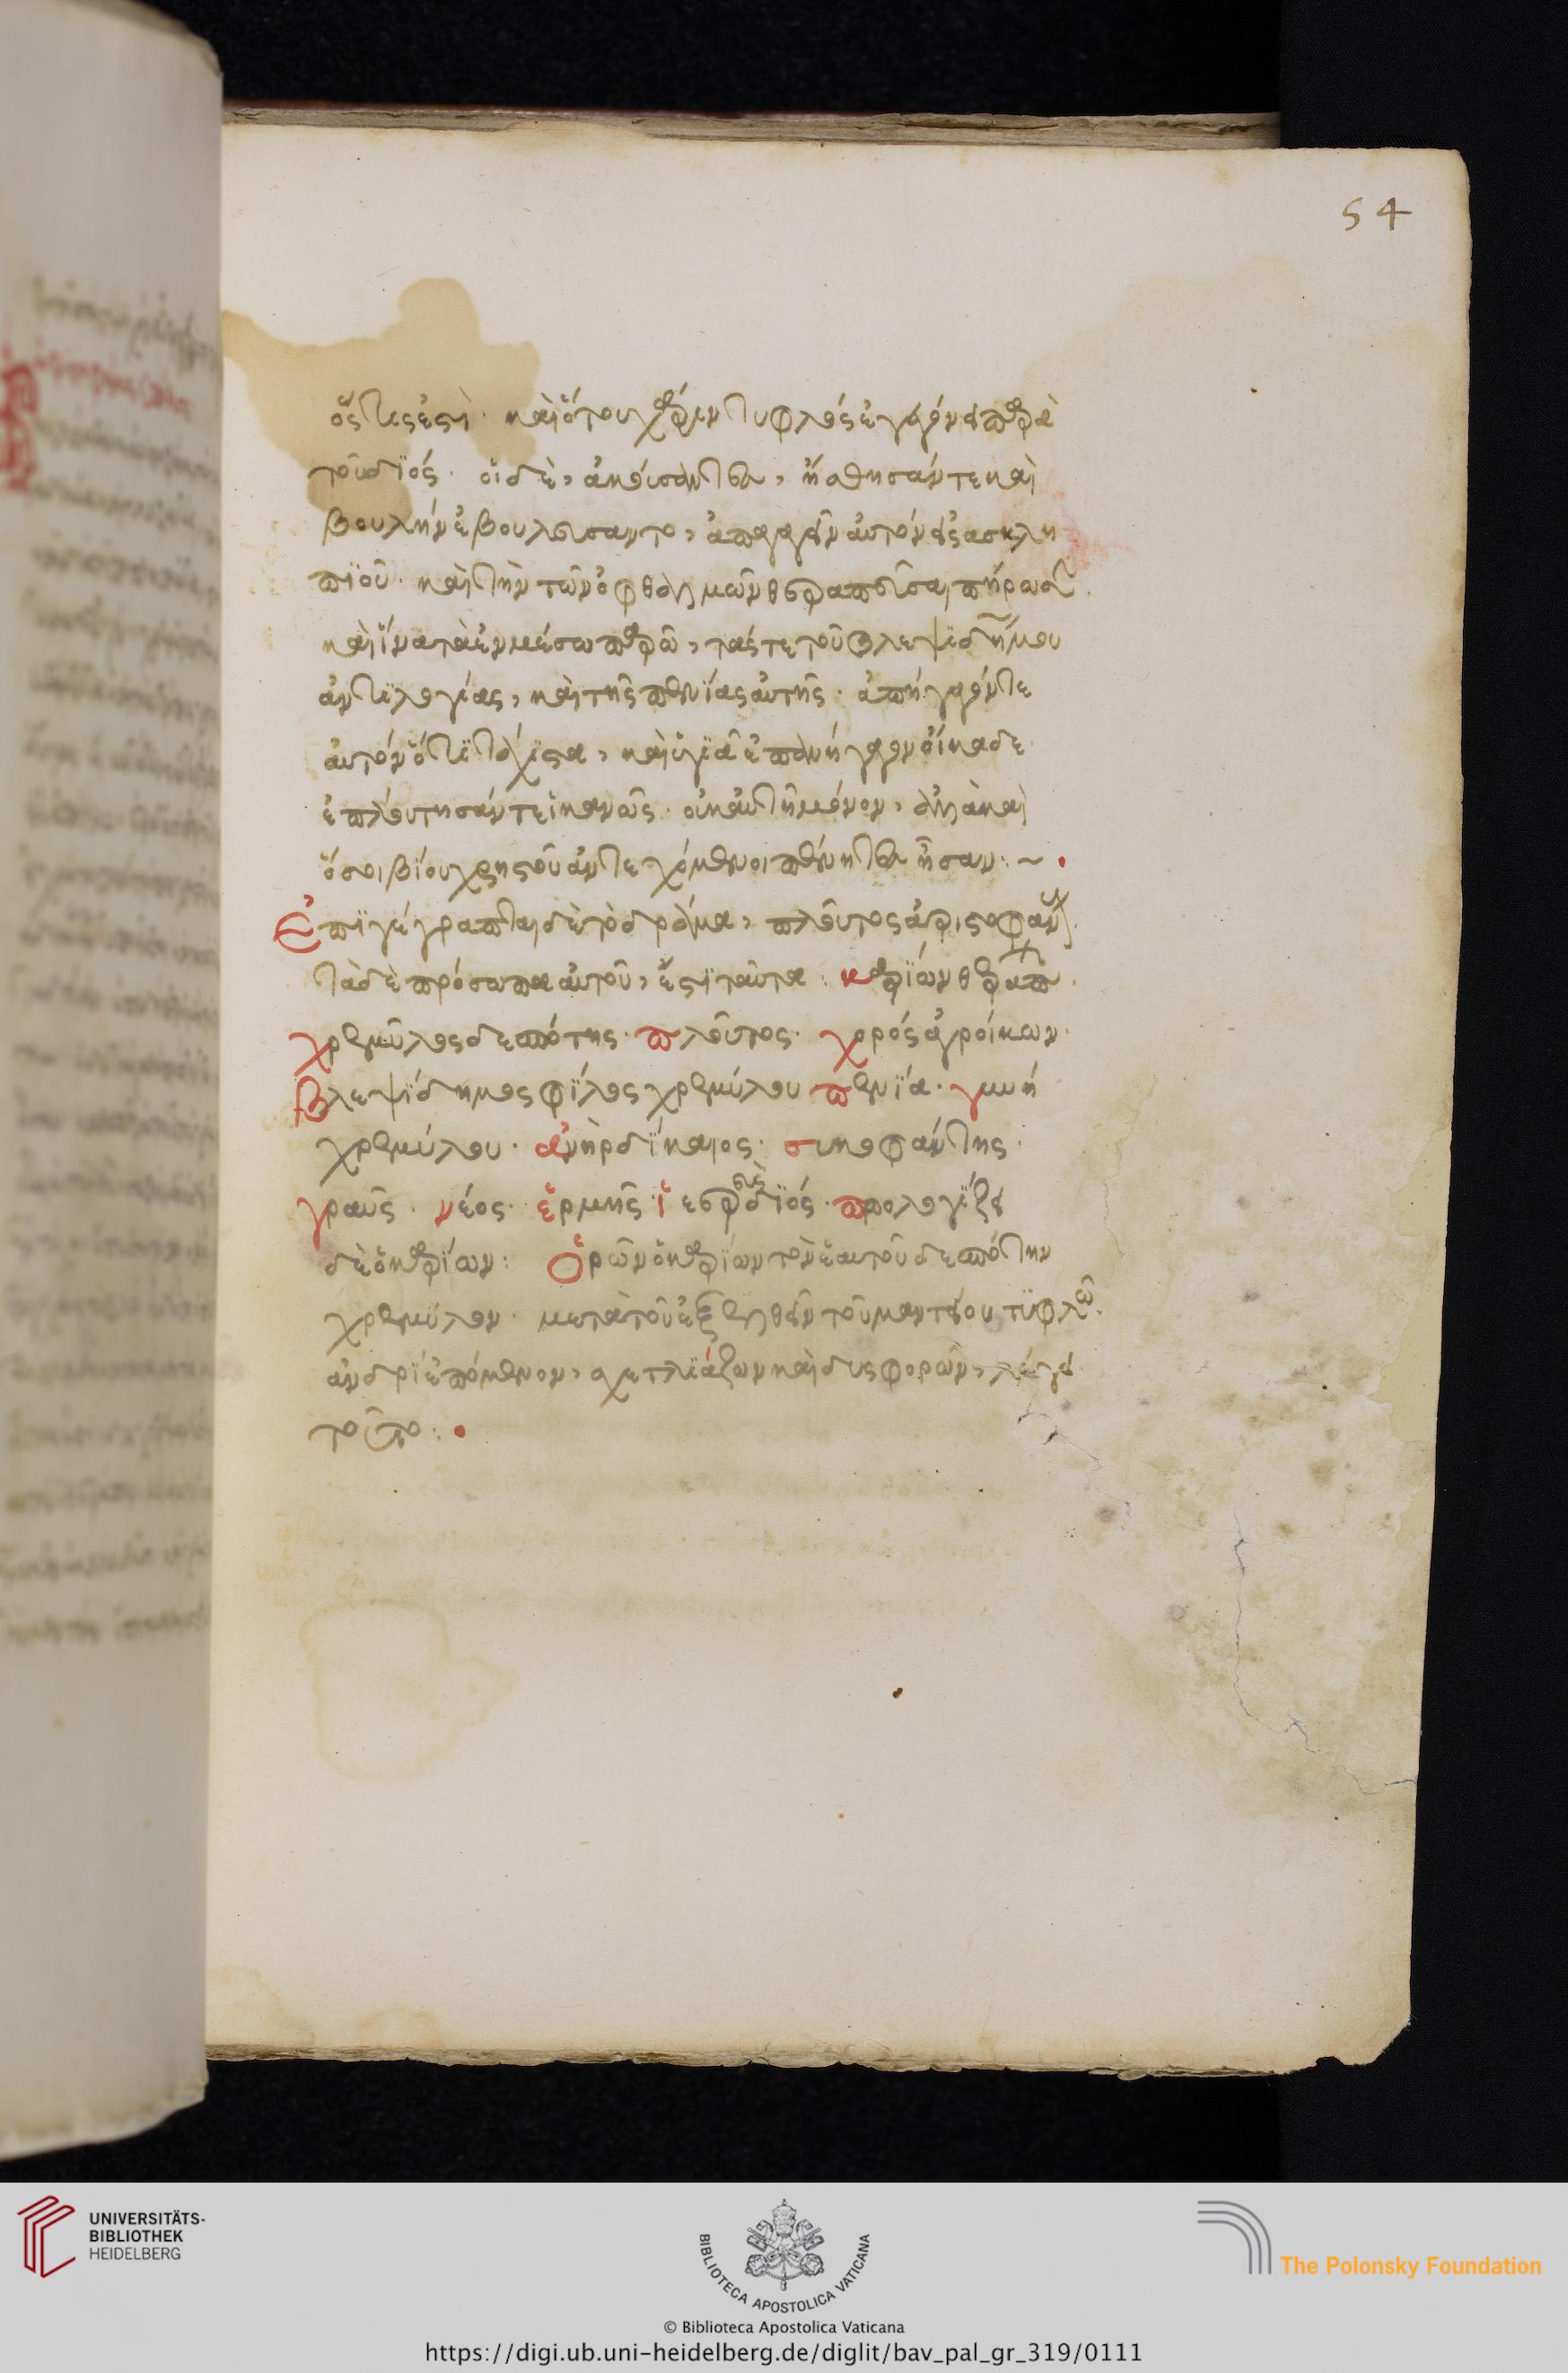 54
ὅς τις ἐστὶ· καὶ ὅτου χάριν τυφλός ἐγεγόνει παρὰ
τοῦ διός· οἱ δὲ, ἀκούσαντες, ἥσθησάν τε καὶ
βουλήν ἐβουλεύσαντο, ἀπαγαγεῖν αὐτόν εἰς ἀσκλη
πιοῦ· καὶ τὴν τῶν ὀφθαλμῶν θεραπεῦσαι πήρωσιν.
καὶ ἵνα τὰ ἐν μέσω παρῶ, τάς τε τοῦ βλεψιδήμου
ἀντιλογίας, καὶ τῆς πενίας αὐτῆς· ἀπήγαγόν τε
αὐτόν ὅτι τάχιστα, καὶ ὑγιᾶ ἐπανήγαγον οἴκαδε
ἐπλούτησάν τε ἱκανῶς· οὐκ αὐτοὶ μόνον, ἀλλὰ καὶ
ὅσοι βίου χρηστοῦ ἀντεχόμενοι πένητες ἦσαν: ~
Ἐπιγέγραπται δὲ τὸ δράμα, πλοῦτος ἀριστοφάνους.
τὰ δὲ πρόσωπα αὐτοῦ, ἔστι ταῦτα: καρίων θεράπων.
χρεμύλος δεσπότης· πλοῦτος· χορός ἀγροίκων·
βλεψίδημος φίλος χρεμύλου πενία· γυνή
χρεμύλου· ἀνὴρ δίκαιος· συκοφάντης·
γραῦς· νέος· ἑρμῆς ἱερεὺς διός· προλογίζει
δὲ ὁ καρίων: Ὁρῶν ὁ καρίων τὸν ἑαυτοῦ δεσπότην
χρεμύλον· μετὰ τοῦ ἐξελθεῖν τοῦ μαντείου τυφλῶ.
ἀνδρὶ ἑπόμενον, σχετλιάζων καὶ δυσφορῶν, λέγει
τοῦτο:
UNIVERSITÄTS-
BIBLIOTHEK
HEIDELBERG
BIBLIOTECA APOSTOLICA VATICANA
The Polonsky Foundation
© Biblioteca Apostolica Vaticana
https://digi.ub.uni-heidelberg.de/diglit/bav_pal_gr_319/0111